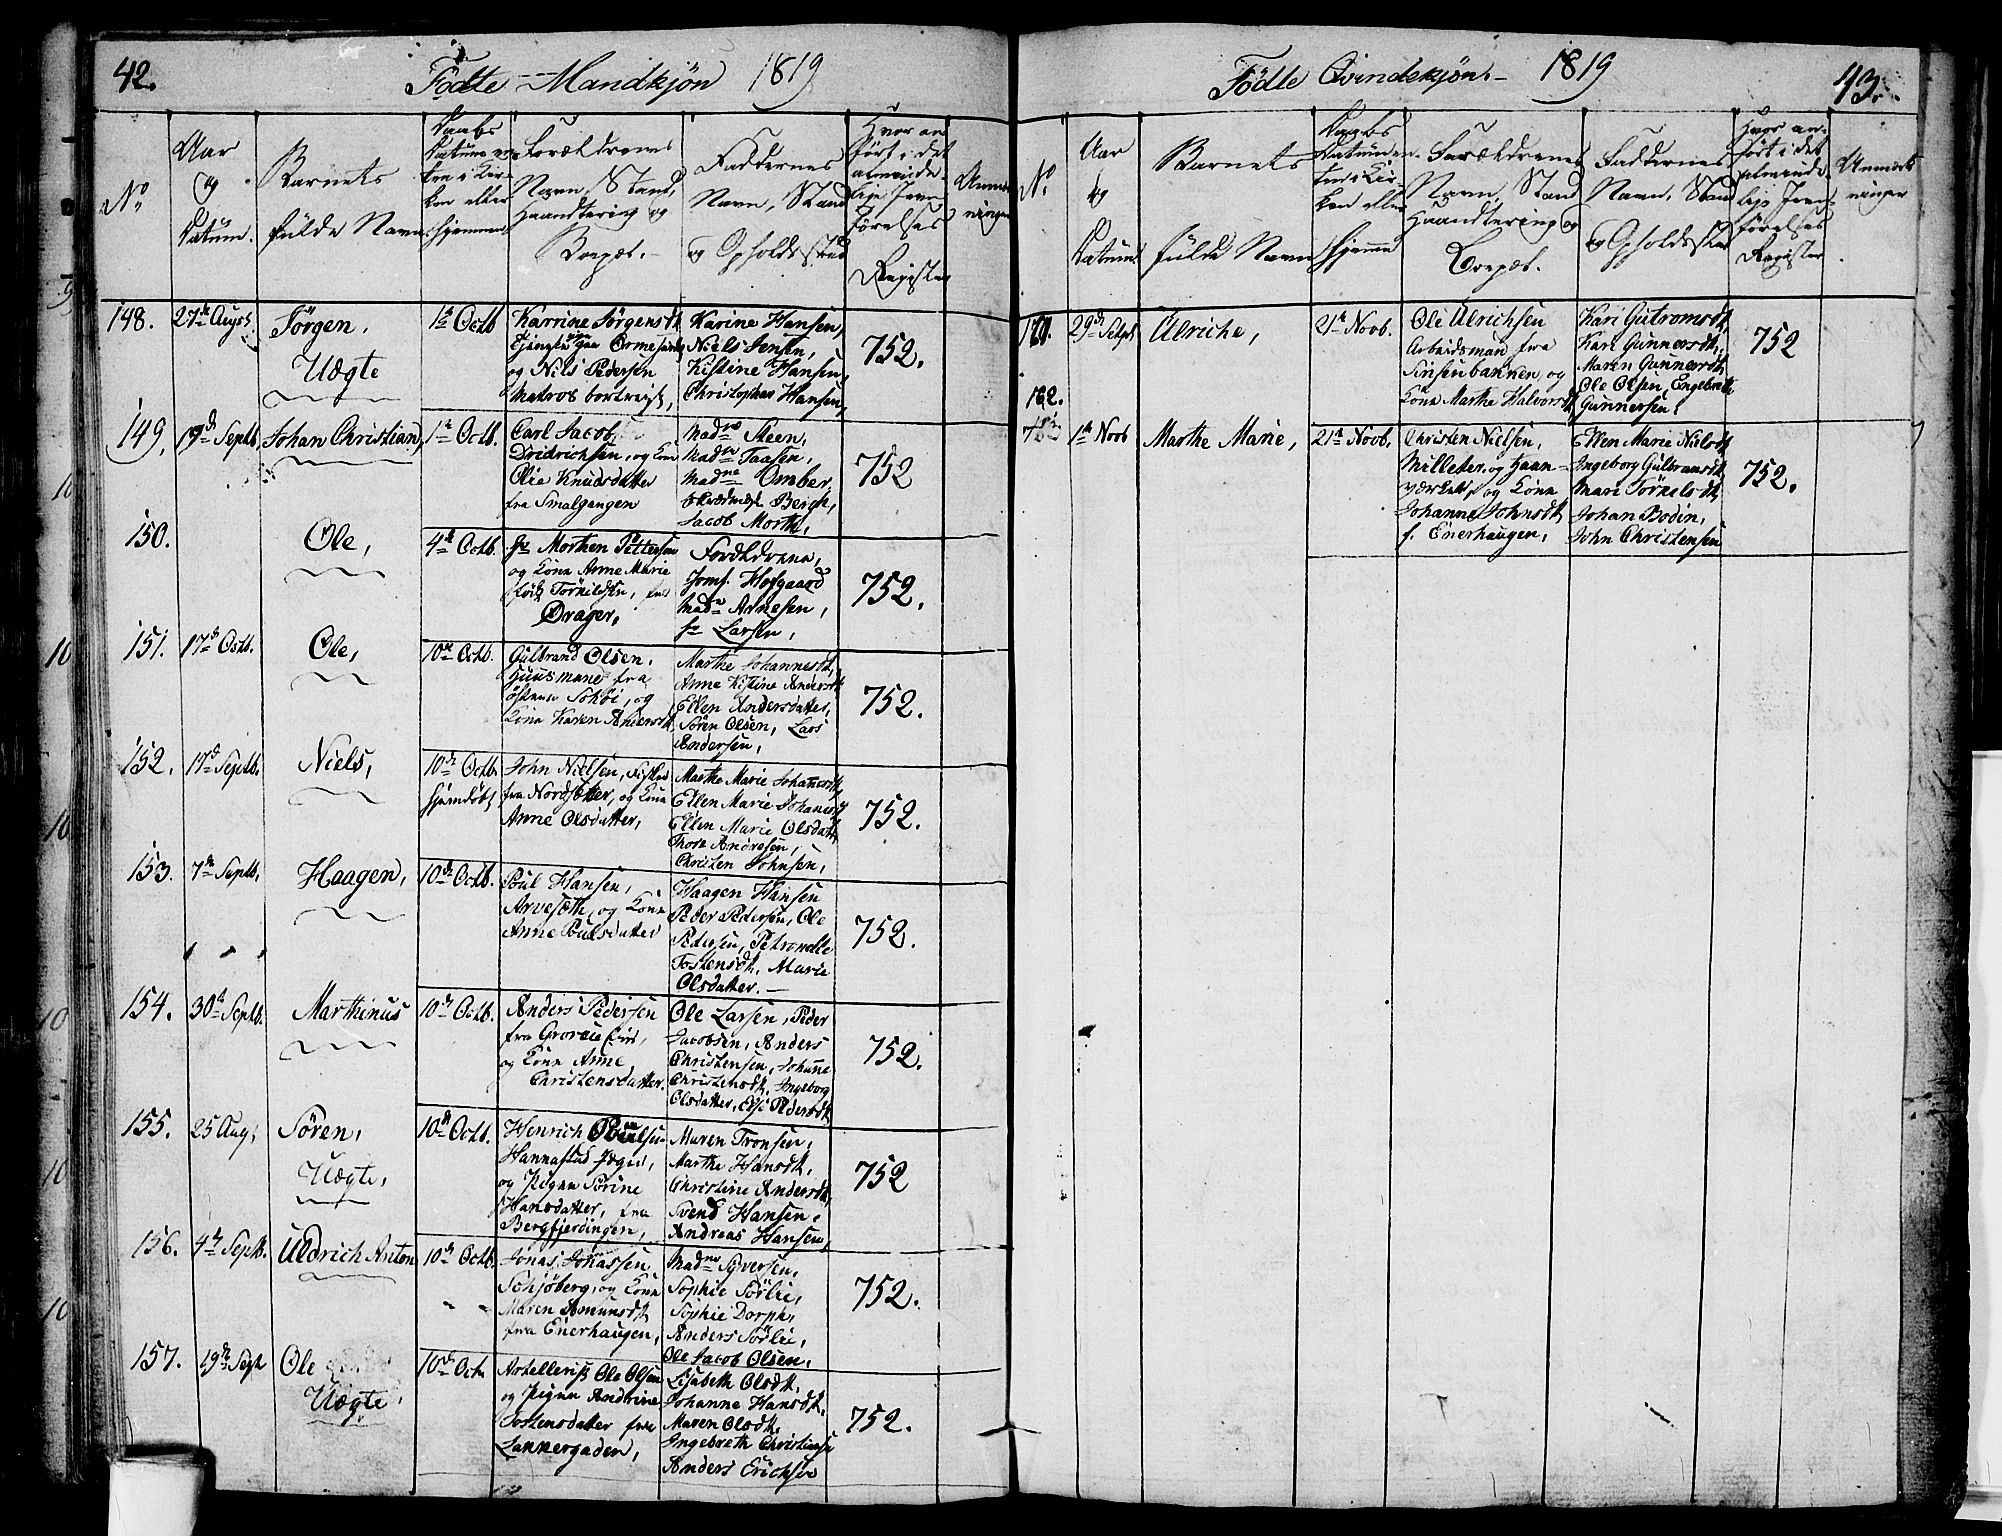 42.
Födte Mandkjøn 1819
No
Aar
og
Datum.
Barnets
fulde Navn
Daabs
Datum
Forældrenes
Navn, Stand,
Haandtering og
Boepæl.
Faddernes
Navn, Stand
og Opholdsstæd
Hvor an
ført i det
almindelige
Register
148.
27de Augst.
Jörgen,
Uægte
1te Octb
Karrine Jörgensdt
og Nils Pedersen
Matros bortreist,
Karine Hansen,
Niels Jensen,
Kistine Hansen,
Christopher Hansen,
752.
149.
19de Septb.
Johan Christian,
1te Octb.
Carl Jacob
Dridrichsen, og Kone
Olie Knudsdatter
fra Smalgangen
Madme Steen,
Madme Taasen,
Madme Omber,
Bergh,
Jacob Morth,
752
150.
Ole,
4de Octb.
Morthen Pettersen
og Kone Anne Marie
Törkildsen, fra
Drager,
Forældrene,
Jomf. Hofgaard
Madme Arnesen,
Larsen,
752.
151.
17de Octb.
Ole,
10de Octb.
Gulbrand Olsen,
Huusmand fra
og
Kone Karen Andersdt
Marthe Johannesdt,
Anne Kistine Andersdt
Ellen Andersdatter,
Sören Olsen, Lars
Andersen,
752.
152.
17de Septb.
Niels,
10de Octb.
hjemdöbt
John Nielsen,
fra Nordsætter, og Kone
Anne Olsdatter,
Marthe Marie Johansdt,
Ellen Marie Johansdt
Ellen Marie Olsdatt,
Thore Andresen,
Christen Johnsen,
752.
153.
7de Septb.
Haagen,
10de Octb.
Poul Hansen,
Arvesæth, og Kone
Anne Poulsdatter
Haagen Hansen
Peder Pedersen, Ole
Pedersen, Petronelle
Tostensdt, Marie
Olsdatter.
752.
154.
30te Septb.
Marthinus
10de Octb.
Anders Pedersen
fra Grorud
og Kone Anne
Christensdatter.
Ole Larsen, Peder
Jacobsen, Anders
Christensen, Johane
Christensdt, Ingeborg
Olsdatter, Else Pedersdt
752.
155.
25 Aug,
Sören,
Uægte,
10de Octb.
Henrich
og Pigen Sörine
Hansdatter, fra
Bergfjerdingen,
Maren Tronsen,
Marthe Hansdt,
Christine Andersdt,
Svend Hansen,
Andreas Hansen,
752
156.
4de Septb.
Uldrich Anton
10de Octb.
Jonas Johassen
Schjöberg, og Kone
Maren Amunsdt
fra Enerhaugen,
Madme Syversen,
Sophie Sörlie,
Sophie Dorph,
Anders Sörlie,
Ole Jacob Olsen,
752.
157.
19de Sept
Ole
Uægte,
10de Oct.
Artellerist Ole Olsen
og Pigen Andrine
Tostensdatter fra
Lakkergaden,
Lisabeth Olsdt,
Johanne Hansdt,
Maren Olsdt,
Ingebreth Christiansen
Anders Erichsen
752.
Födte Qvindekjön 1819
43.
No
Aar
og
Datum
Barnets
fulde Navn
Daabs
Datum
Forældrenes
Navn, Stand
Haandtering og
Boepæl.
Faddernes
Navn, Stand
og Opholdsstæd
Hvor an-
ført i det
Register
Anmærk
ninger
29de Septb.
Ulriche,
21de Novb.
Ole Ulrichsen
Arbeidsmand fra
Sinsenbakken, og
Kone Marthe Halvorsdt
Kari Gutromsdt,
Kari Gunnersdt,
Maren Gunnersdt,
Ole Olsen, Engebreth
Gunnersen,
752
162.
1te Novb
Marthe Marie,
21de Novb.
Christen Nielsen,
og Kone
Johanne Johnsdt
f. Enerhaugen,
Ellen Marie Nielsdt
Ingeborg Gulbransdt
Mari Törkelsdt,
Johan Bodin,
John Christensen
752.